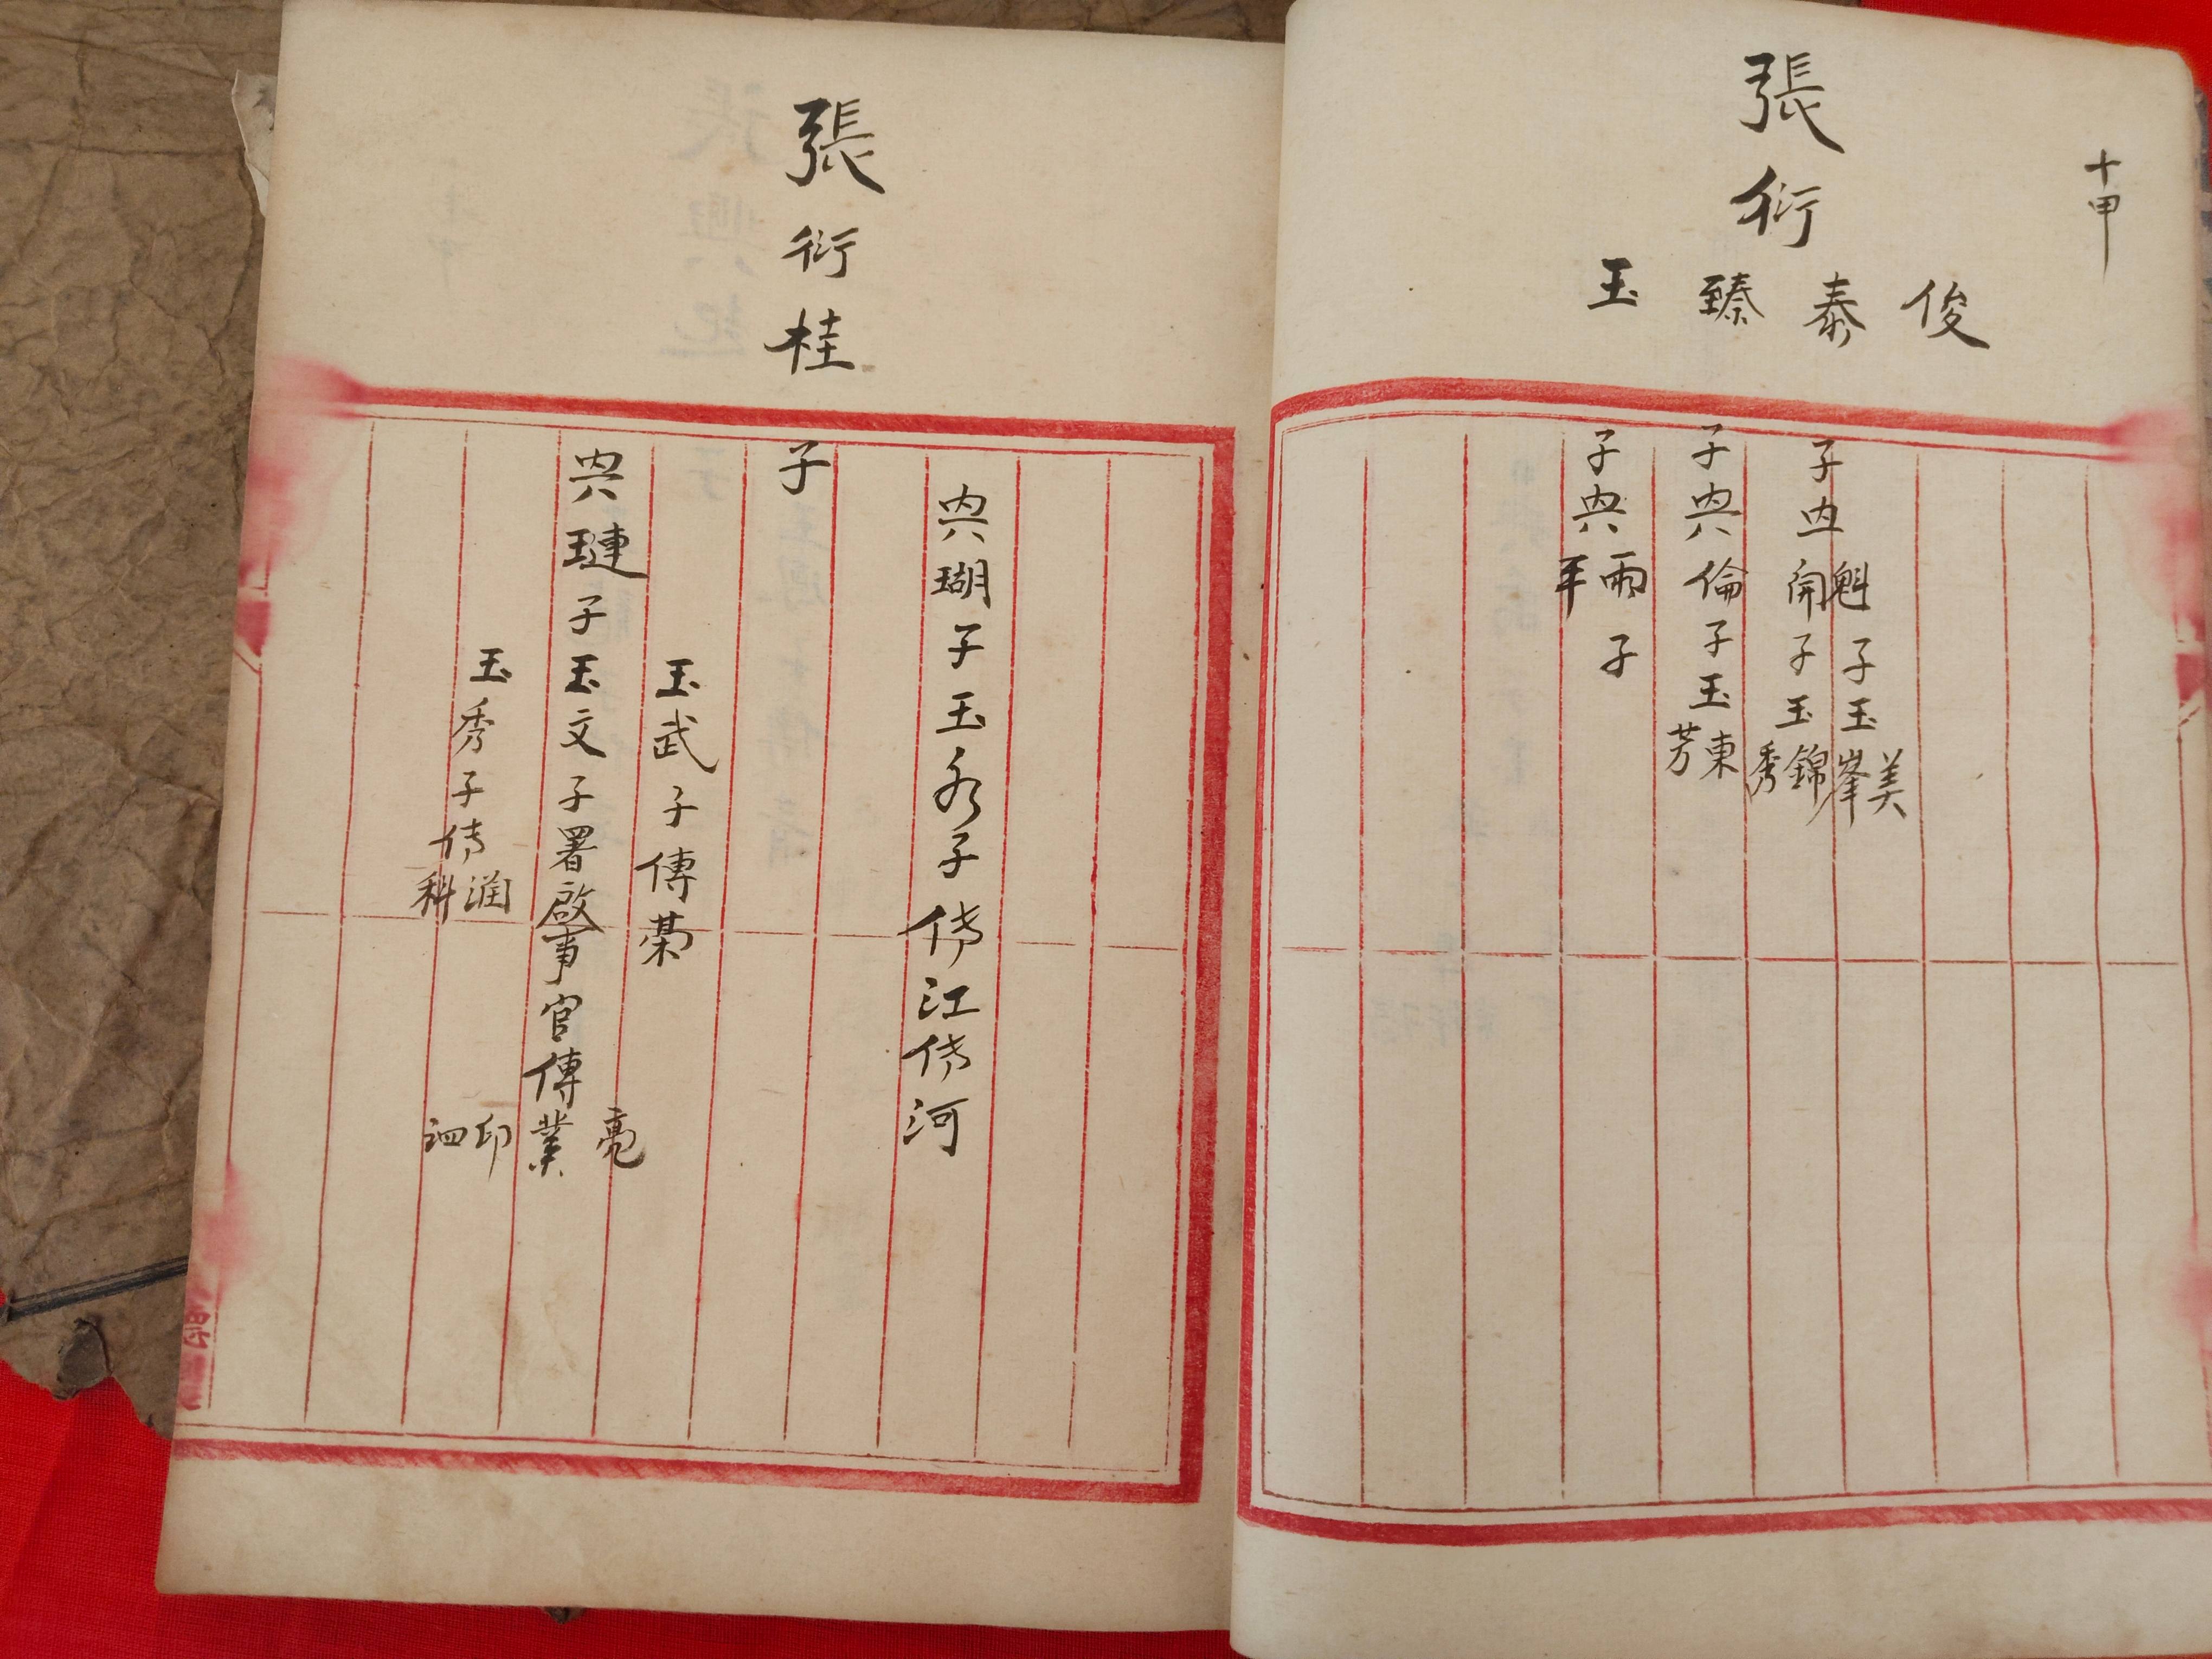 十甲
張衍
俊
泰
臻
玉
子典
魁子玉
美
峯
開子玉
錦
秀
子典倫子玉
東
芳
子典
雨子
年
張衍桂
子
典瑚子玉永子傳江傳河
典璉子玉文子署啟事官傳業
玉武子傳榮
亮
印
泗
玉秀子傳
潤
科